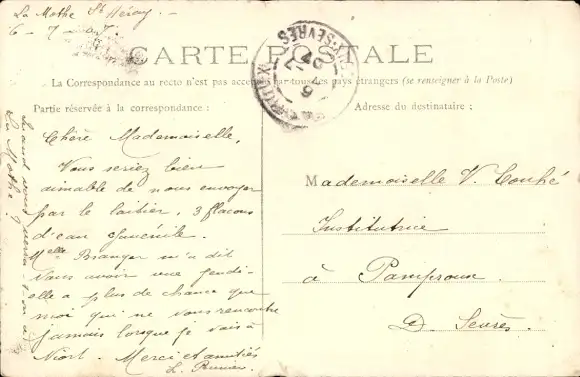 La Mothe St Héray -
6 - 7 - 07.
CARTE POSTALE
La Correspondance au recto n'est pas acceptée par tous les pays étrangers (se renseigner à la Poste)
Partie réservée à la correspondance :
Adresse du destinataire :
Chère Mademoiselle,
Vous seriez bien
aimable de nous envoyer
par le laitier, 3 flacons
d'eau
Melle m'a dit
vous avoir vue jeudi -
elle a plus de chance que
moi qui ne vous rencontre
jamais lorsque je vais à
Niort. Merci et amitiés
Quand vous verra-t-on à
La Mothe?
Mademoiselle V. Couhé
Institutrice
à Pamproux
D. Sèvres
SÈVRES